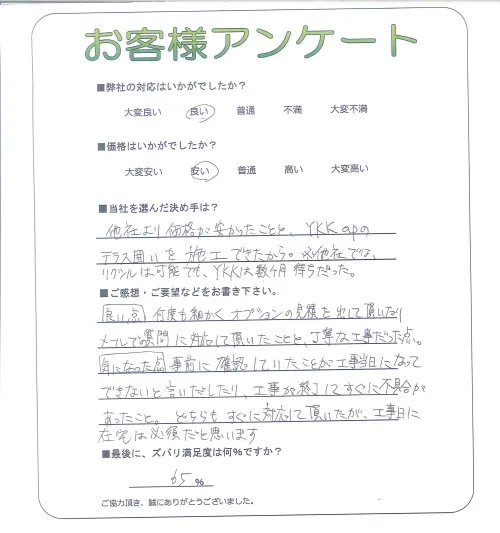 お客様アンケート
■弊社の対応はいかがでしたか？
大変良い 良い 普通 不満 大変不満
■価格はいかがでしたか？
大変安い 安い 普通 高い 大変高い
■当社を選んだ決め手は？
他社より価格が安かったことと、YKK apの
テラス囲いを施工できたから。※他社では、
リクシルは可能でも、YKKは数ヶ月待ちだった。
■ご感想・ご要望などをお書き下さい。
良い点 何度も細かくオプションの見積を出して頂いたり
メールでの質問に対応して頂いたことと、丁寧な工事だった点。
気になった点 事前に確認していたことが工事当日になって
できないと言いだしたり、工事が終了してすぐに不具合が
あったこと。どちらもすぐに対応して頂いたが、工事日に
在宅は必須だと思います
■最後に、ズバリ満足度は何%ですか？
65 %
ご協力頂き、誠にありがとうございました。